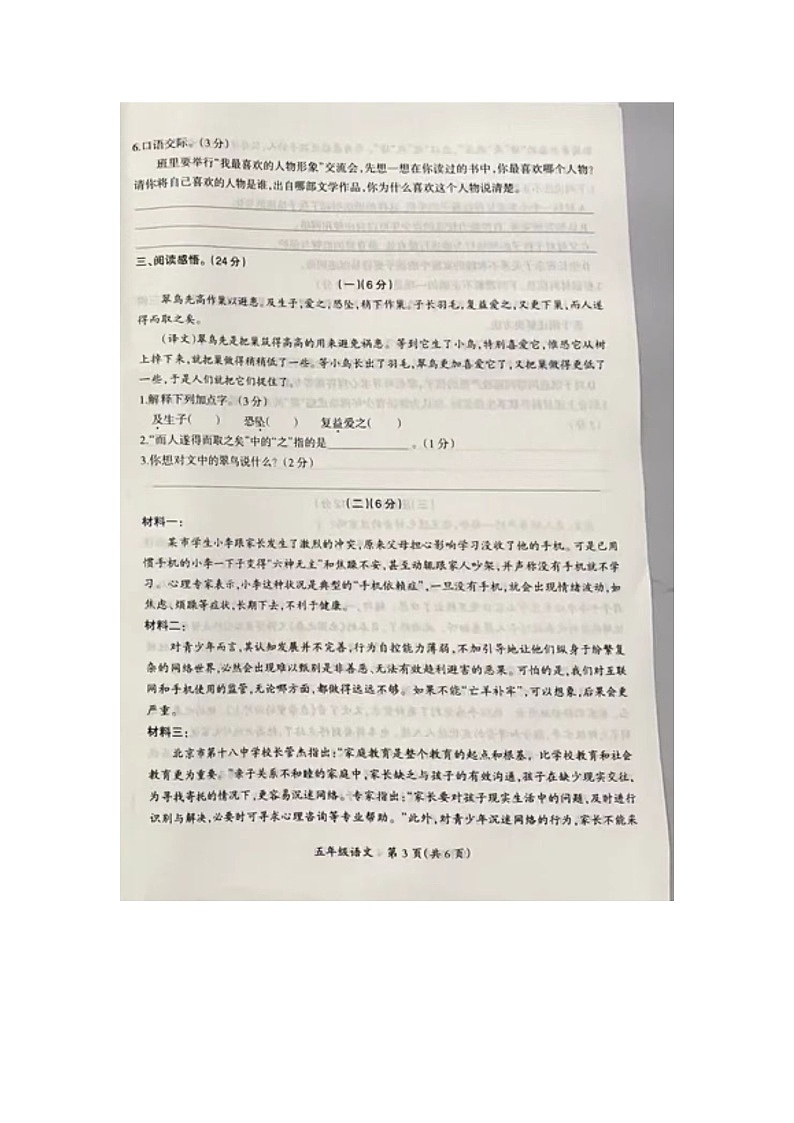 6.口语交际。(3分)
班里要举行“我最喜欢的人物形象”交流会,先想一想在你读过的书中,你最喜欢哪个人物?
请你将自己喜欢的人物是谁,出自哪部文学作品,你为什么喜欢这个人物说清楚。
三、阅读感悟。(24分)
(一)(6分)
翠鸟先高作巢以避患。及生子,爱之,恐坠,稍下作巢。子长羽毛,复益爱之,又更下巢,而人遂
得而取之矣。
(译文)翠鸟先是把巢筑得高高的用来避免祸患。等到它生了小鸟,特别喜爱它,惟恐它从树
上摔下来,就把巢做得稍稍低了一些。等小鸟长出了羽毛,翠鸟更加喜爱它了,又把巢做得更低了
一些,于是人们就把它们捉住了。
1.解释下列加点字。(3分)
及生子( ) 恐坠( ) 复益爱之( )
2.“而人遂得而取之矣”中的“之”指的是 。(1分)
3.你想对文中的翠鸟说什么?(2分)
(二)(6分)
材料一:
某市学生小李跟家长发生了激烈的冲突,原来父母担心影响学习没收了他的手机。可是已用
惯手机的小李一下子变得“六神无主”和焦躁不安,甚至动辄跟家人吵架,并声称没有手机就不学
习。心理专家表示,小李这种状况是典型的“手机依赖症”,一旦没有手机,就会出现情绪波动,如
焦虑、烦躁等症状,长期下去,不利于健康。
材料二:
对青少年而言,其认知发展并不完善,行为自控能力薄弱,不加引导地让他们纵身于纷繁复
杂的网络世界,必然会出现难以甄别是非善恶、无法有效趋利避害的恶果。可怕的是,我们对互联
网和手机使用的监管,无论哪方面,都做得远远不够。如果不能“亡羊补牢”,可以想象,后果会更
严重。
材料三:
北京市第十八中学校长管杰指出:“家庭教育是整个教育的起点和根基,比学校教育和社会
教育更为重要。”亲子关系不和睦的家庭中,家长缺乏与孩子的有效沟通,孩子在缺少现实交往,
为寻找寄托的情况下,更容易沉迷网络。专家指出:“家长要对孩子现实生活中的问题,及时进行
识别与解决,必要时可寻求心理咨询等专业帮助。”此外,对青少年沉迷网络的行为,家长不能采
五年级语文 第3页(共6页)